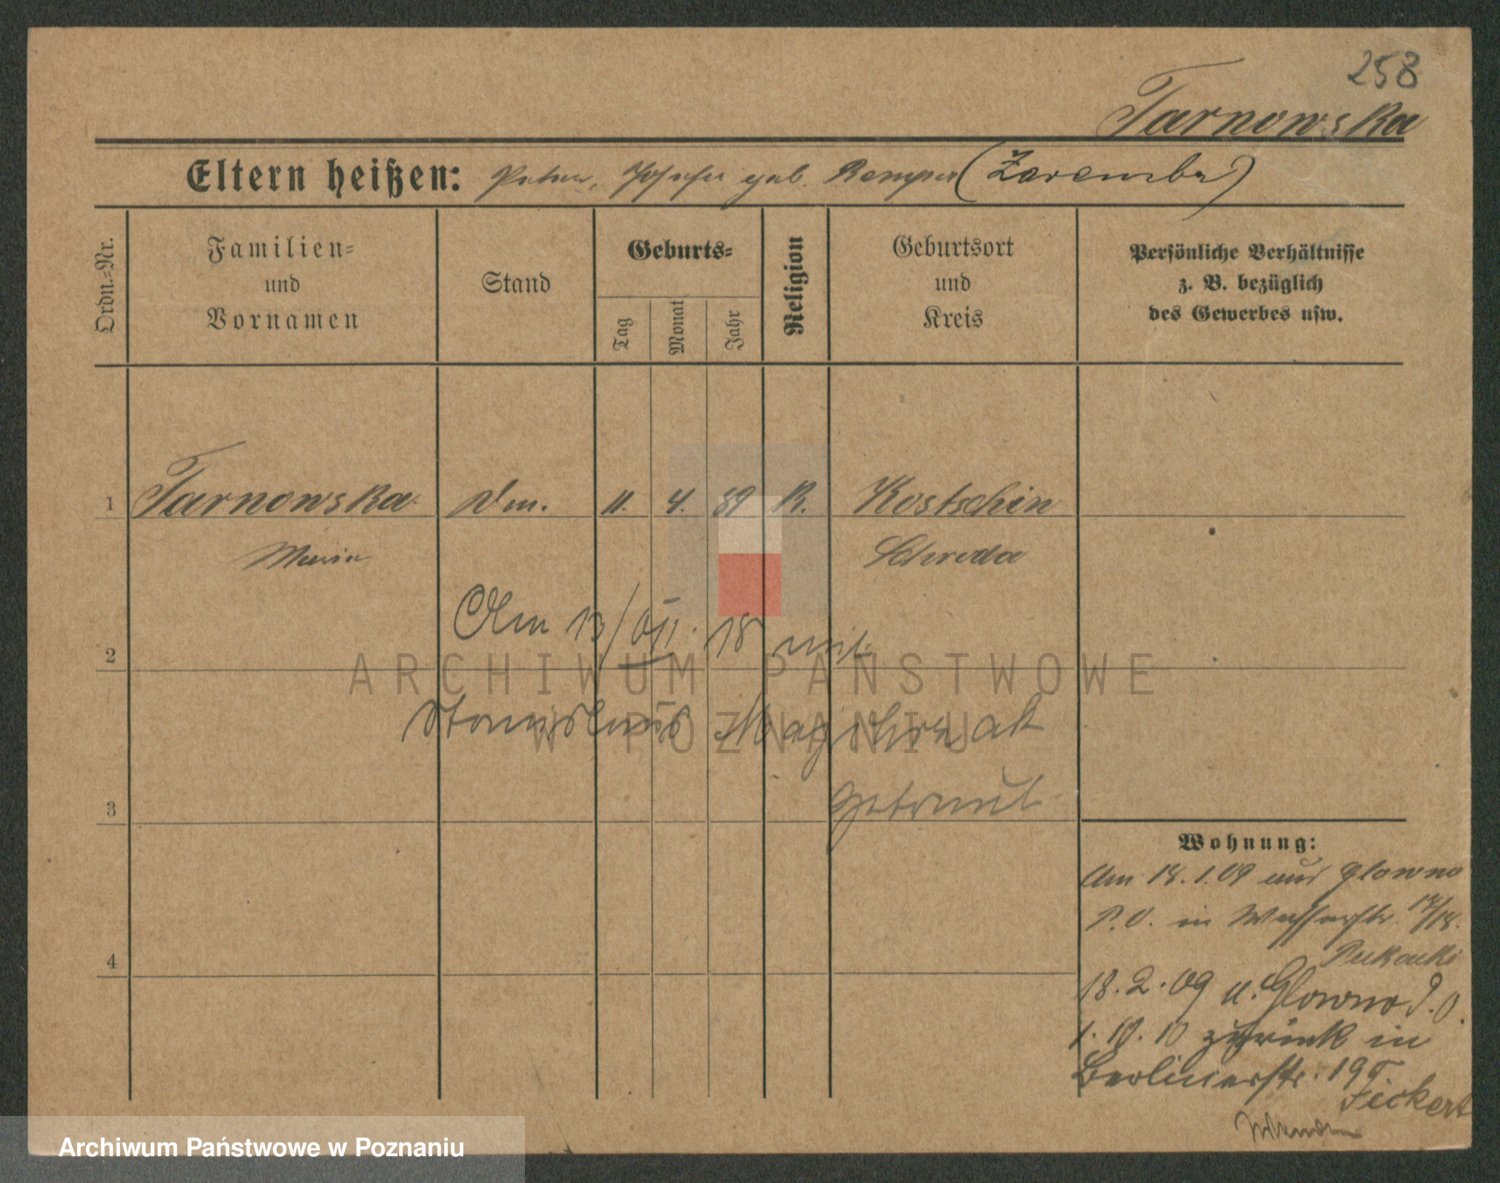 258
Tarnowska
Eltern heißen: geb. (Zaremba)
Ordn.-Nr.
Familien-
und
Vornamen
Stand
Geburts-
Tag
Monat
Jahr
Religion
Geburtsort
und
Kreis
Persönliche Verhältnisse
z. B. bezüglich
des Gewerbes usw.
1 Tarnowska 11. 4. 89 R. Kostschin
Maria Schroda
Am 13/VII. 18 mit
2
Stanislaus
getraut
3
Wohnung:
Am 18.1.09 aus Glowno
P.O. in Wasserstr. 17/18.
4
18.2.09 n. Glowno P.O.
1.10.10 zurück in
Berlinerstr. 19
Fickert
ARCHIWUM PAŃSTWOWE
W POZNANIU
Archiwum Państwowe w Poznaniu